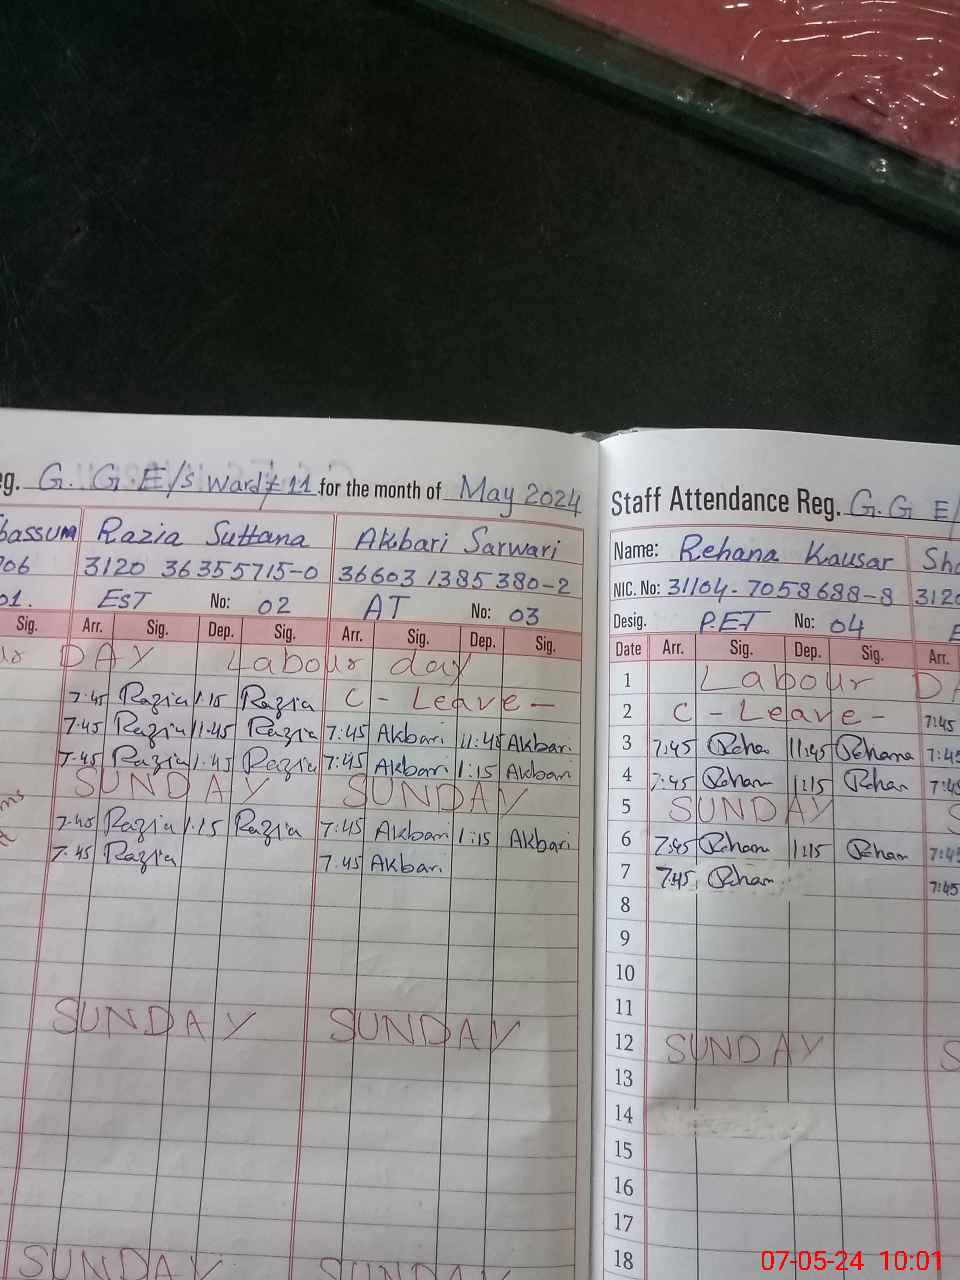 eg. G. G. E/s Ward # 11 for the month of May 2024
bassum Razia Sultana Akbari Sarwari
706 3120 36355715-0 36603 1385380-2
01. EST No: 02 AT No: 03
Sig. Arr. Sig. Dep. Sig. Arr. Sig. Dep. Sig.
ur DAY Labour day
7:45 Razia 1:15 Razia C - Leave -
7:45 Razia 11:45 Razia 7:45 Akbari 11:45 Akbari
7:45 Razia 1:45 Razia 7:45 Akbari 1:15 Akbari
SUNDAY SUNDAY
7:45 Razia 1:15 Razia 7:45 Akbari 1:15 Akbari
7:45 Razia 7:45 Akbari
SUNDAY SUNDAY
SUNDAY SUNDAY
Staff Attendance Reg. G.G E/
Name: Rehana Kausar Sha
NIC. No: 31104-7058688-8 3120
Desig. PET No: 04 E
Date Arr. Sig. Dep. Sig. Arr.
1 Labour DA
2 C - Leave - 7:45
3 7:45 Reha 11:45 Rehana 7:45
4 7:45 Reham 1:15 Rehan 7:45
5 SUNDAY S
6 7:45 Reham 1:15 Reham 7:45
7 7:45 Reham 7:45
8
9
10
11
12 SUNDAY S
13
14
15
16
17
18
07-05-24 10:01